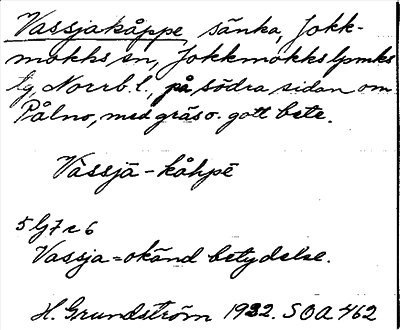 Vassjakåppe sänka, Jokk-
mokks sn, Jokkmokks lpmks
tg, Norrb. l., på södra sidan om
Pålno, med gräs o. gott bete.
Vàssjā-kåhpē
5 G 7 c 6
Vassja = okänd betydelse.
H. Grundström 1932. SOA 462